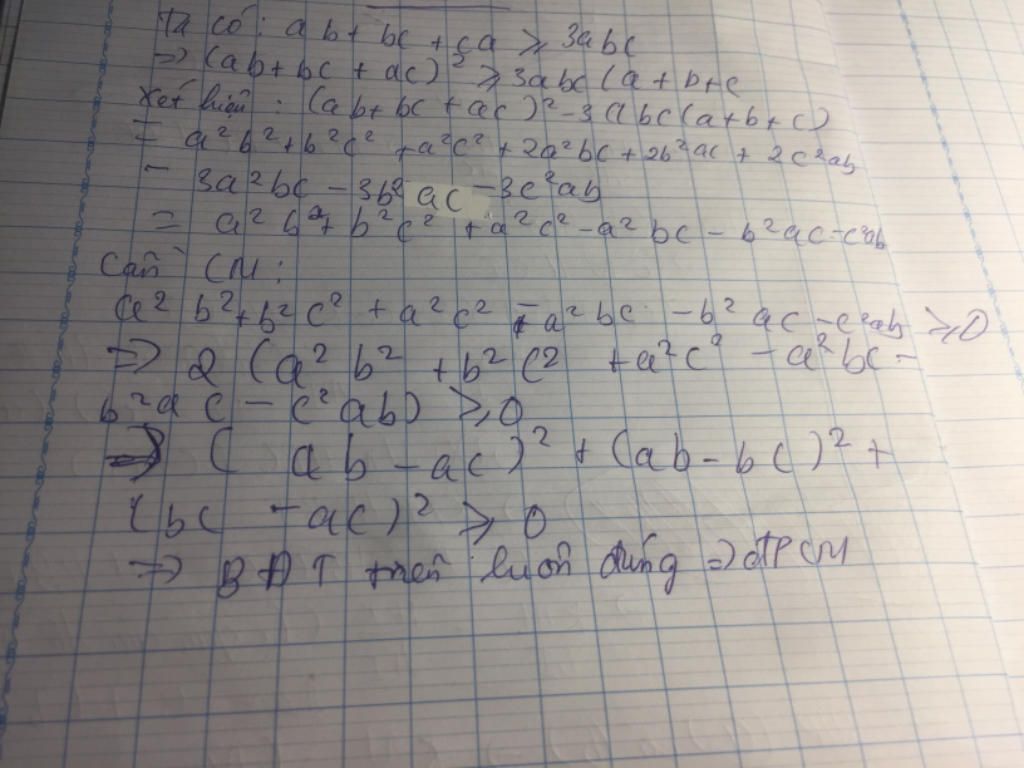 Ta có: ab + bc + ca ⩾ 3abc
=> (ab + bc + ac)² ⩾ 3abc (a + b + c
Xét hiệu: (ab + bc + ac)² - 3abc(a+b+c)
= a²b² + b²c² + a²c² + 2a²bc + 2b²ac + 2c²ab
- 3a²bc - 3b²ac - 3c²ab
= a²b² + b²c² + a²c² - a²bc - b²ac - c²ab
Cần CM:
a²b² + b²c² + a²c² - a²bc - b²ac - c²ab ⩾ 0
=> 2 (a²b² + b²c² + a²c² - a²bc -
b²ac - c²ab) ⩾ 0
=> (ab - ac)² + (ab - bc)² +
(bc - ac)² ⩾ 0
=> BĐT trên luôn đúng => đPCM